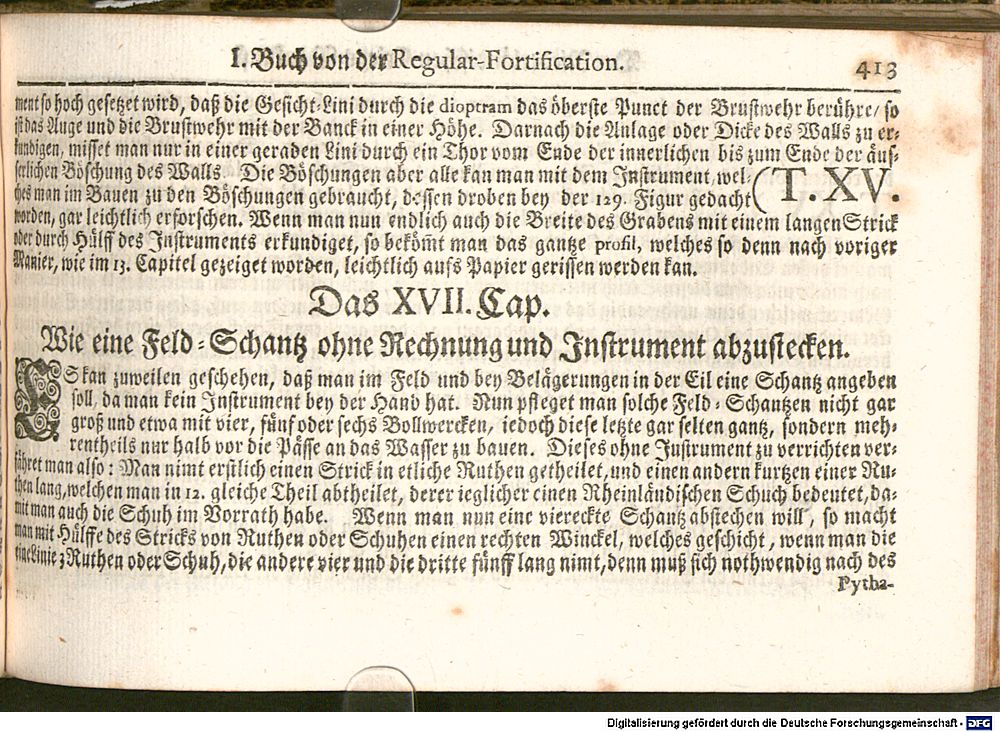 I. Buch von der Regular-Fortification. 413
ment so hoch gesetzet wird, daß die Gesicht-Lini durch die dioptram das öberste Punct der Brustwehr berühre/ so
ist das Auge und die Brustwehr mit der Banck in einer Höhe. Darnach die Anlage oder Dicke des Walls zu er-
kundigen, misset man nur in einer geraden Lini durch ein Thor vom Ende der innerlichen bis zum Ende der äus-
serlichen Böschung des Walls. Die Böschungen aber alle kan man mit dem Instrument, wel-
ches man im Bauen zu den Böschungen gebraucht, dessen droben bey der 129. Figur gedacht (T. XV.
worden, gar leichtlich erforschen. Wenn man nun endlich auch die Breite des Grabens mit einem langen Strick
oder durch Hülff des Instruments erkundiget, so bekom̃t man das gantze profil, welches so denn nach voriger
Manier, wie im 13. Capitel gezeiget worden, leichtlich aufs Papier gerissen werden kan.
Das XVII. Cap.
Wie eine Feld-Schantz ohne Rechnung und Instrument abzustecken.
ES kan zuweilen geschehen, daß man im Feld und bey Belägerungen in der Eil eine Schantz angeben
soll, da man kein Instrument bey der Hand hat. Nun pfleget man solche Feld-Schantzen nicht gar
groß und etwa mit vier, fünf oder sechs Bollwercken, iedoch diese letzte gar selten gantz, sondern meh-
rentheils nur halb vor die Pässe an das Wasser zu bauen. Dieses ohne Instrument zu verrichten ver-
fähret man also: Man nimt erstlich einen Strick in etliche Ruthen getheilet, und einen andern kurtzen einer Ru-
then lang, welchen man in 12. gleiche Theil abtheilet, derer ieglicher einen Rheinländischen Schuch bedeutet, da-
mit man auch die Schuh im Vorrath habe. Wenn man nun eine viereckte Schantz abstechen will, so macht
man mit Hülffe des Stricks von Ruthen oder Schuhen einen rechten Winckel, welches geschicht, wenn man die
eine Linie 3 Ruthen oder Schuh, die andere vier und die dritte fünff lang nimt, denn muß sich nothwendig nach des
Pytha-
Digitalisierung gefördert durch die Deutsche Forschungsgemeinschaft - DFG